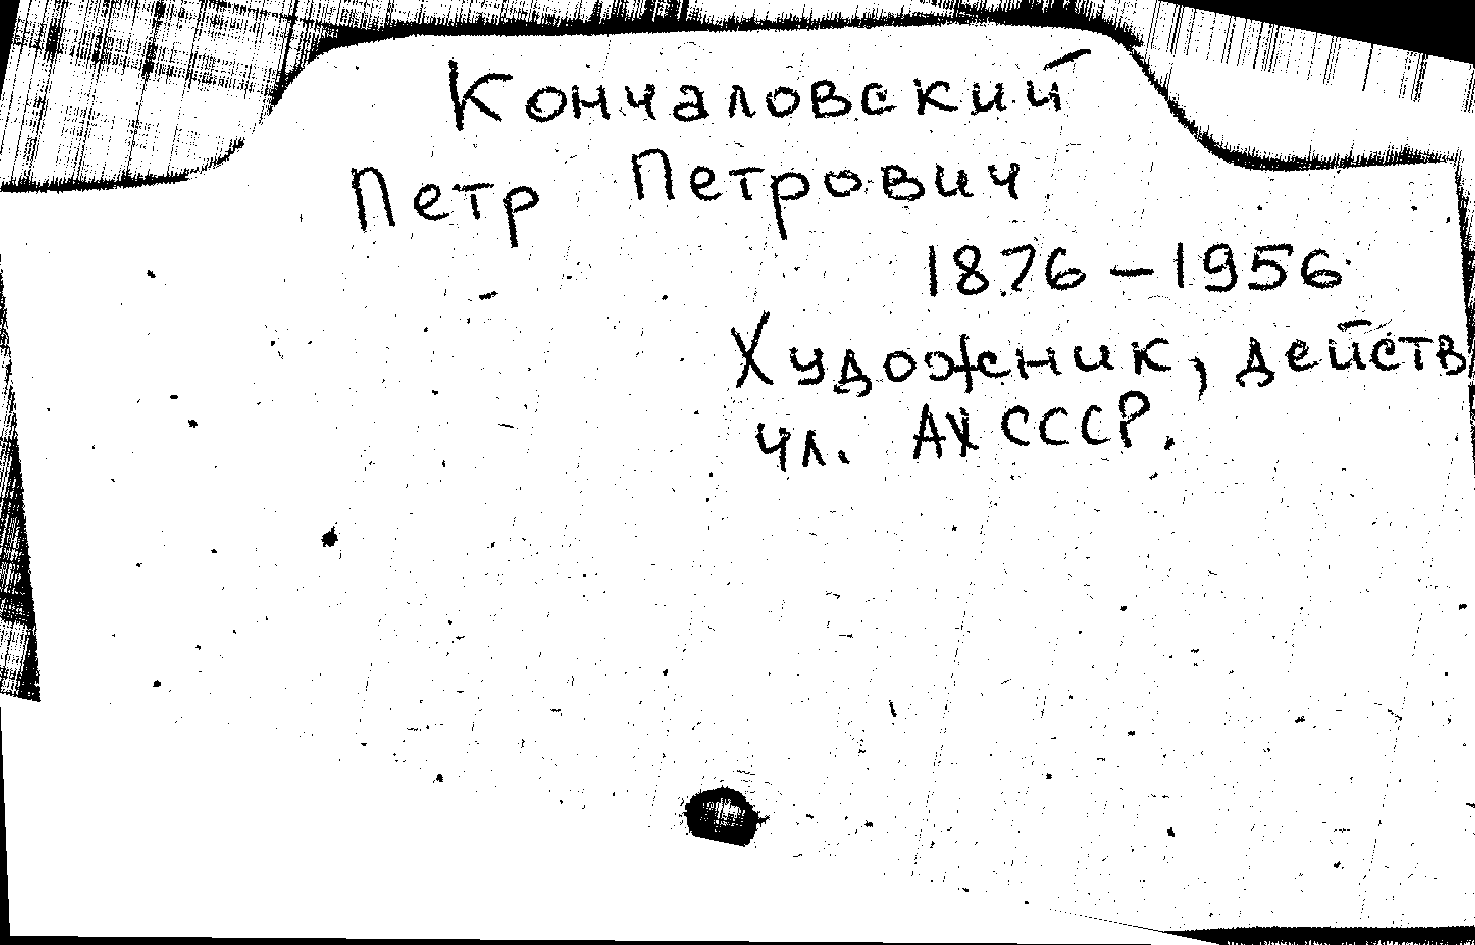 Кончаловский
Петр Петрович
1876-1956
Художник, действ
чл. АХ СССР.